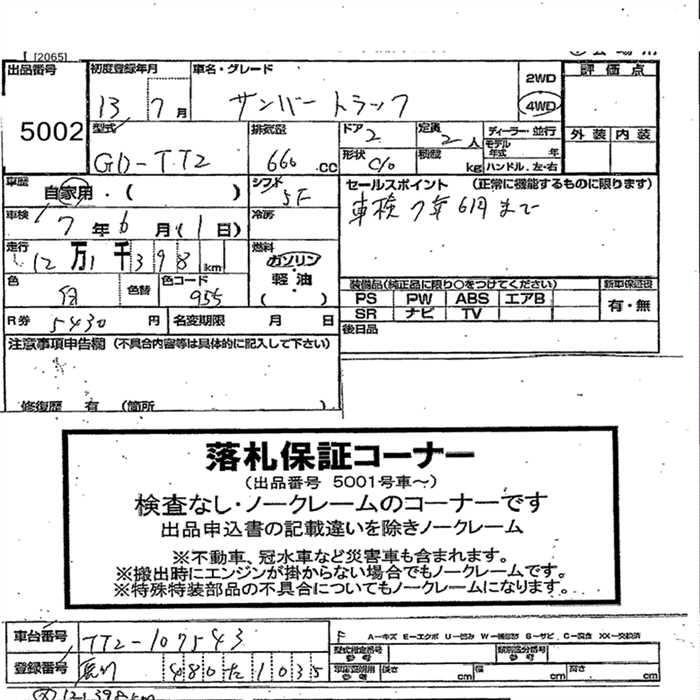 [2065]
出品番号 初度登録年月 車名・グレード 2WD 評価点
5002 13 7月 サンバートラック 4WD
型式 排気量 ドア 2 定員 2人 ディーラー・並行 外装 内装
モデル年式 年
GD-TT2 660 cc 形状 C/O 積載 kg ハンドル.左・右
車歴 自家用・( ) シフト 5F セールスポイント (正常に機能するものに限ります)
車検 7年6月(1日) 冷房 車検7年6月まで
走行 12万1千398km 燃料 ガソリン・軽油( )
色 色替 色コード 955 装備品(純正品に限り○をつけてください) 新車保証書
PS PW ABS エアB 有・無
R券 5430円 名変期限 月 日 SR ナビ TV
注意事項申告欄 (不具合内容等は具体的に記入して下さい) 後日品
修復歴 有 (箇所 )
落札保証コーナー
(出品番号 5001号車~)
検査なし・ノークレームのコーナーです
出品申込書の記載違いを除きノークレーム
※不動車、冠水車など災害車も含まれます。
※搬出時にエンジンが掛からない場合でもノークレームです。
※特殊特装部品の不具合についてもノークレームになります。
車台番号 TT2-107543 F A-キズ E-エクボ U-凹み W-補修跡 S-サビ C-腐食 XX-交換済
型式指定番号 参考 類別区分番号 参考
登録番号 480 た 1035 車庫証明用 参考 長さ cm 幅 cm 高さ cm
121398km